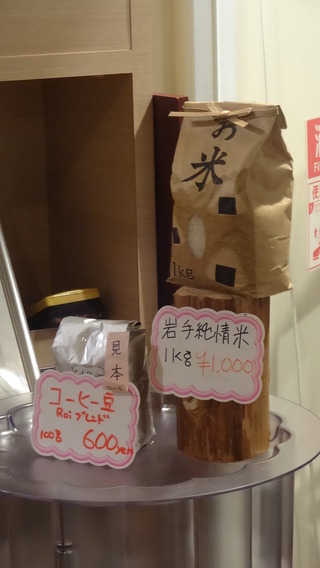 お米
1kg
岩手純情米
1Kg ¥1,000
見本
コーヒー豆
Roiブレンド
100g 600yen